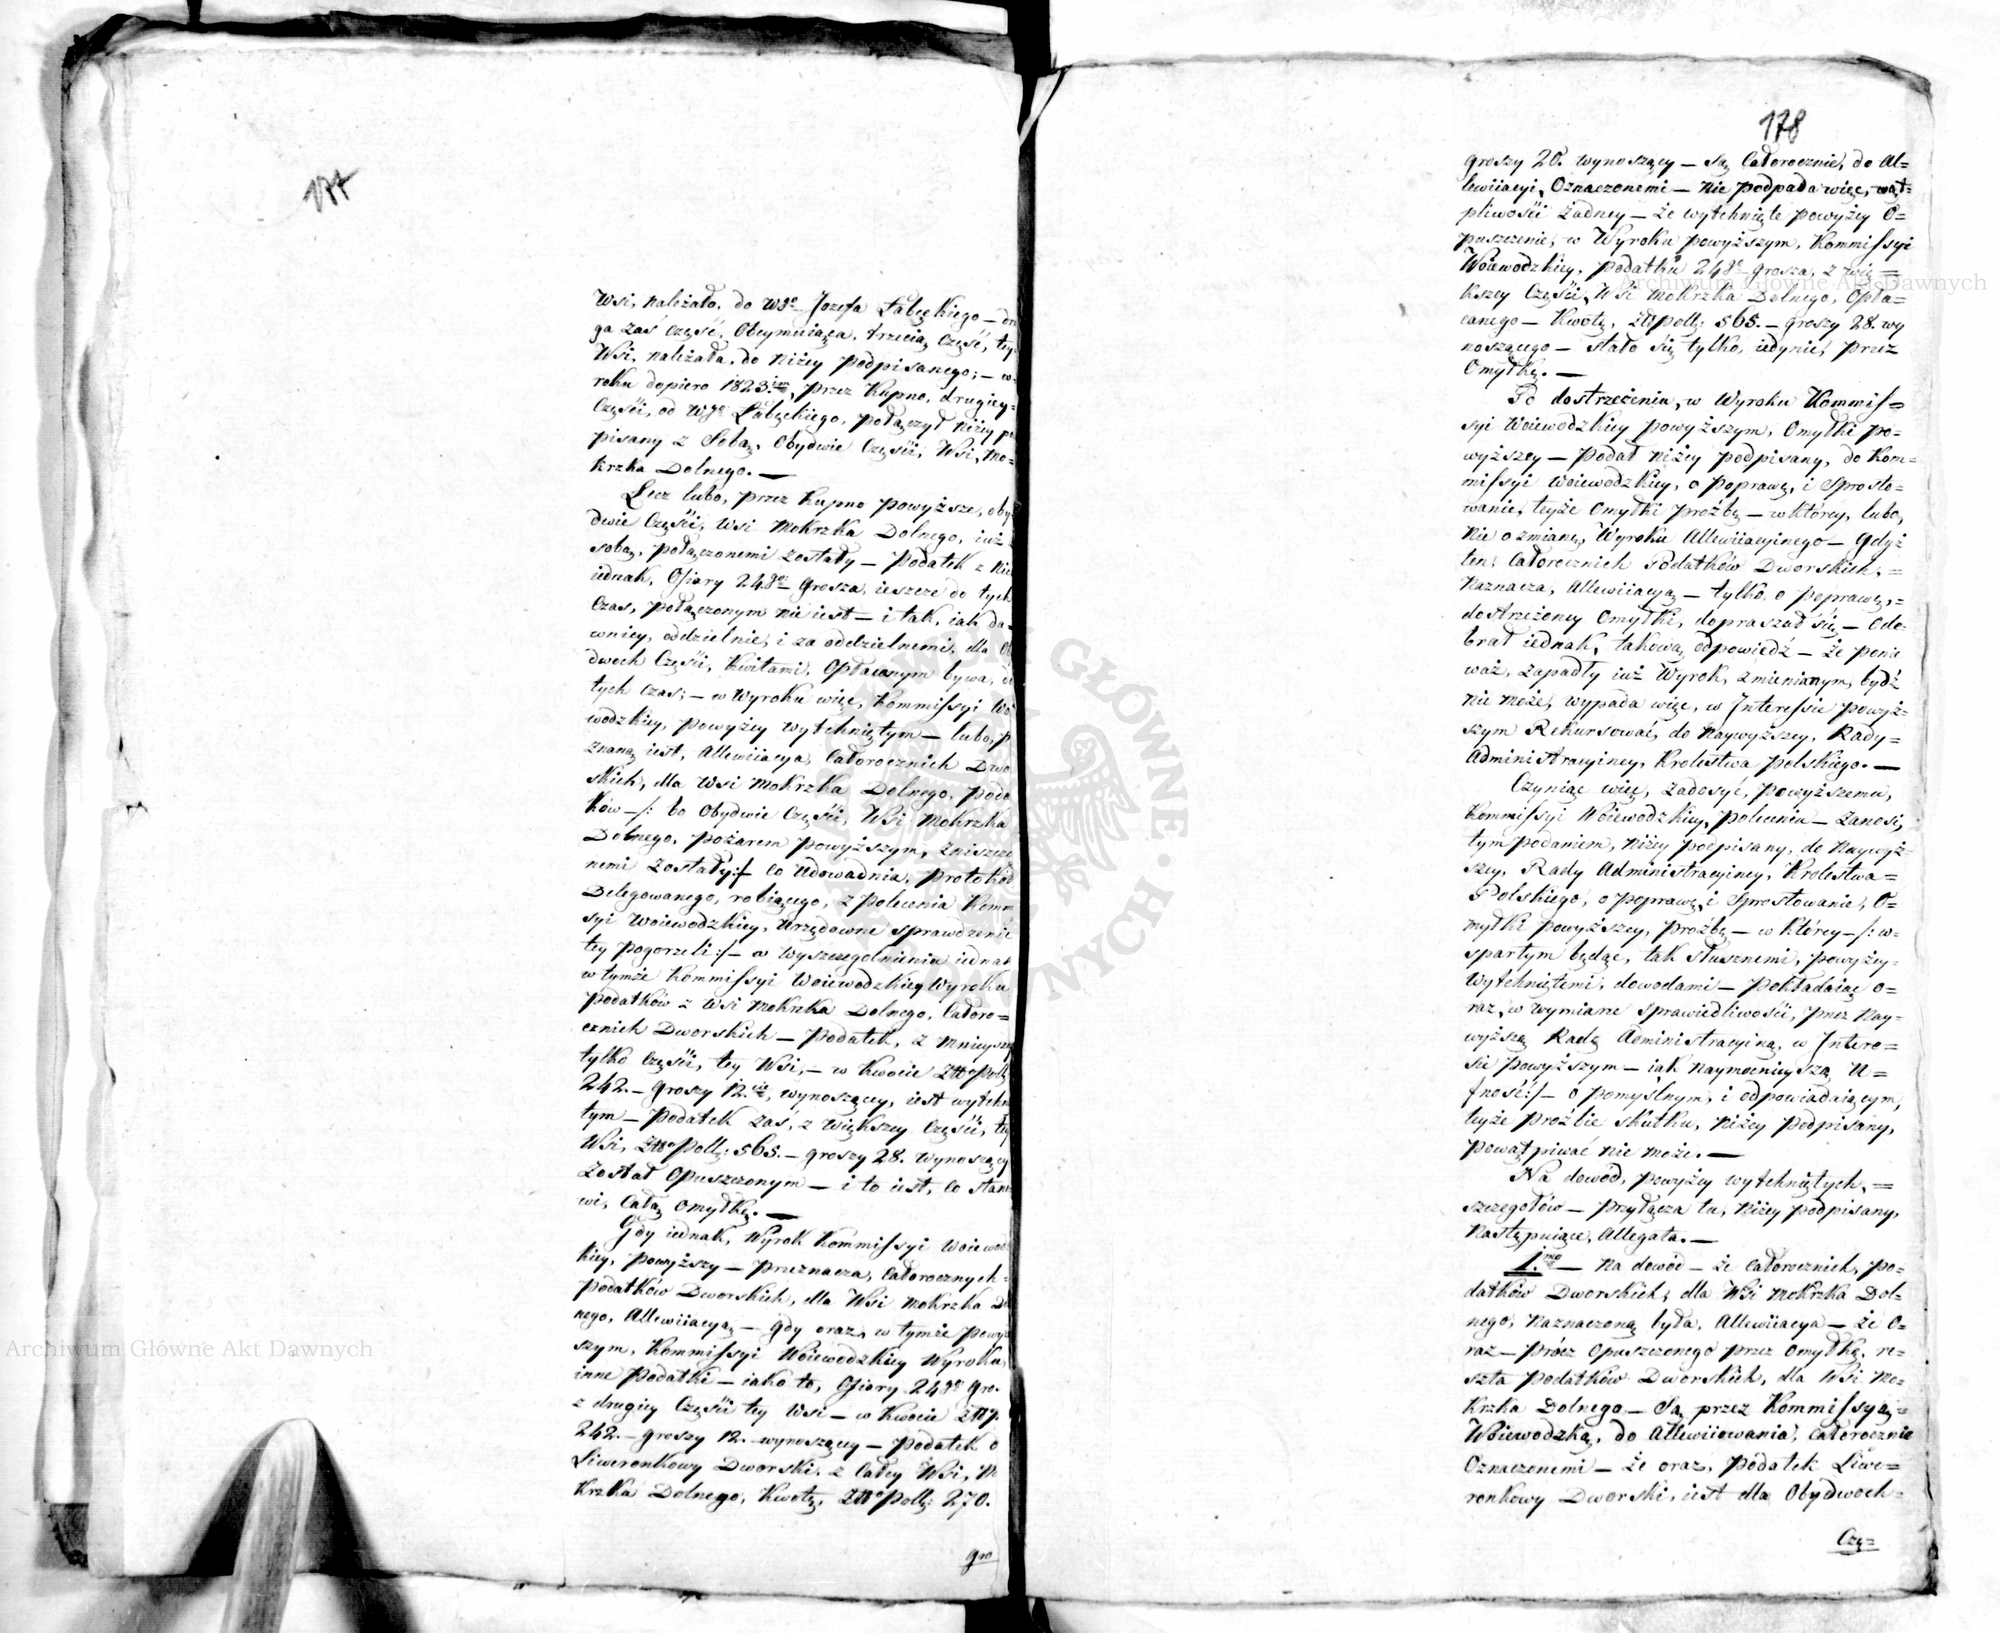 177
Wsi, należało, do Wgo Jozefa Łabęckiego — dru
ga zaś część, Obeymuiąca, trzecią część, tey
Wsi, należała, do niżey podpisanego; — w
roku dopiero 1823im, przez Kupno, drugiey=
Części, od Wgo Łabęckiego, połączył niżey po
pisany z Sobą, Obydwie Części, Wsi, Mo=
krzka Dolnego. —
Lecz lubo, przez Kupno powyższe, oby
dwie Części, Wsi Mokrzka Dolnego, iuż
sobą, połączonemi zostały — Podatek z nic
iednak, Ofiary 24go Grosza, ieszcze do tych
Czas, połączonym nie iest — i tak, iak da=
wniey, oddzielnie, i za oddzielnemi, dla O
dwoch Części, Kwitami, Opłacanym bywa, d
tych Czas; — w Wyroku więc, Kommissyi Wo
wodzkiey, powyżey wytchniętym — lubo, p
znaną iest, Allewiiacya, Całorocznich Dwo
skich, dla Wsi Mokrzka Dolnego, Poda
ków —/: bo Obydwie Części, Wsi Mokrzka
Dolnego, pożarem powyższym, zniszczo
nemi zostały:/— co udowadnia, Protokół
Delegowanego, robiącego, z polecenia Komm
syi Woiewodzkiey, Urzędowne sprawdzenie
tey pogorzeli:/— w wyszczegolnieniu iednak
w tymże Kommissyi Woiewodzkiey Wyroku
Podatków z Wsi Mokrzka Dolnego, Całoro=
cznich Dworskich — Podatek, z mnieysze
tylko Części, tey Wsi, — w Kwocie Złto Polk:
242. — groszy 12.cie, wynoszący, iest wytchn
tym — Podatek zaś, z większey Części, tey
Wsi, Złto Polk: 565. — groszy 28. wynoszący
Został Opuszczonym — i to iest, co stano
wi, Całą Omyłkę. —
Gdy iednak, Wyrok Kommissyi Woiewod
kiey, Powyższy — przeznacza, Całorocznych=
Podatków Dworskich, dla Wsi Mokrzka Do
nego, Allewiiacyą — gdy oraz, w tymże Powyż
szym, Kommissyi Woiewodzkiey Wyroku,
inne Podatki — iako to, Ofiary 24go Gro.
z drugiey Części tey Wsi — w Kwocie Złtp.
242. — groszy 12. — wynoszący — Podatek o
Liweronkowy Dworski, z całey Wsi, M
krzka Dolnego, Kwotę, Złto Polk: 270.
gro
178
groszy 20. wynoszący — są Całorocznie, do Al=
lewiiacyi, Oznaczonemi — nie podpada więc, wąt=
pliwości żadney — że wytchnięte powyżey O=
puszczenie, w Wyroku powyższym, Kommissyi
Woiewodzkiey, podatku 24go grosza, z wię=
kszey Części, Wsi Mokrzka Dolnego, Opła=
canego — Kwotę, Złtpolk: 565. — groszy 28. wy
noszącego — stało się tylko, iedynie, przez
Omyłkę. —
Po dostrzeżeniu, w Wyroku Kommis=
syi Woiewodzkiey powyższym, Omyłki po=
wyższey — Podał niżey podpisany, do Kom=
missyi Woiewodzkiey, o poprawę, i Sprosto=
wanie, teyże Omyłki prośbę — w ktorey, lubo,
nie o zmianę, Wyroku Allewiiacyinego — Gdyż
ten, Całorocznich Podatków Dworskich, =
Naznacza, Allewiiacyą — tylko, o poprawę, =
dostrzeżoney Omyłki, dopraszał się — Ode=
brał iednak, takową odpowiedź — że ponie
waż, zapadły iuż Wyrok, zmienianym, bydź
nie może, wypada więc, w Interessie powyż=
szym Rekursować, do Naywyższey, Rady=
Administracyiney, Krolestwa Polskiego. —
Czyniąc więc, zadosyć, powyższemu,
Kommissyi Woiewodzkiey, poleceniu — zanosi,
tym podaniem, niżey podpisany, do Naywyż=
szey, Rady Administracyiney, Krolestwa=
Polskiego, o poprawę, i Sprostowanie, O=
myłki powyższey, prośbę — w ktorey —/: w=
spartym będąc, tak słusznemi, powyżey=
wytchniętemi, dowodami — Pokładaiąc o=
raz, w wymiarze sprawiedliwości, przez Nay=
wyższą Radę Administracyiną, w Intere=
sie powyższym — iak naymocnieyszą U=
fność:/— o pomyślnym, i odpowiadaiącym,
teyże prośbie skutku, niżey podpisany,
powątpiwać nie może. —
Na dowód, powyżey wytchniętych, =
szczegołów — przyłącza tu, niżey podpisany,
następuiące, Allegata. —
1.mo — Na dowód — że Całorocznich, Po=
datków Dworskich, dla Wsi Mokrzka Dol=
nego, Naznaczoną była, Allewiiacya — że o=
raz — prócz Opuszczonego przez Omyłkę, re=
szta Podatków Dworskich, dla Wsi Mo=
krzka Dolnego — Są przez Kommissyą=
Woiewodzką, do Allewiiowania, Całorocznie
Oznaczonemi — że oraz, Podatek Liwe=
ronkowy Dworski, iest dla Obydwoch=
Czę=
Archiwum Główne Akt Dawnych
Archiwum Główne Akt Dawnych